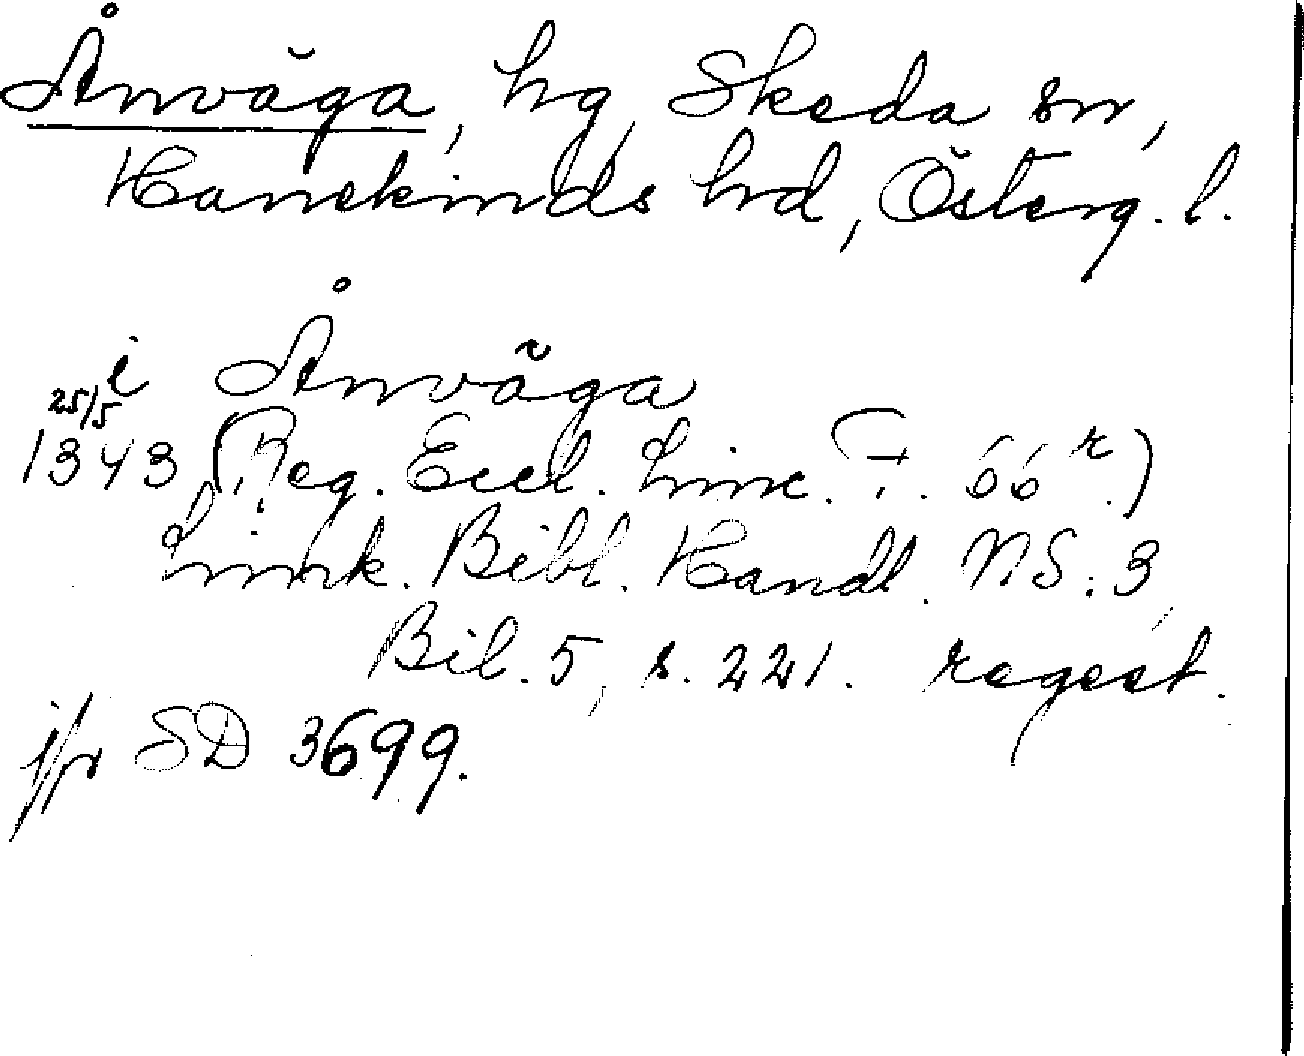 Ånväga, hg, Skeda sn,
Hanekinds hd, Österg. l.
i Ånväga
25/5
1343 (Reg. Eccl. Linc. F. 66 r.)
Link. Bibl. Handl. N.S: 3,
Bil. 5, s. 221. regest.
jfr SD 3699.